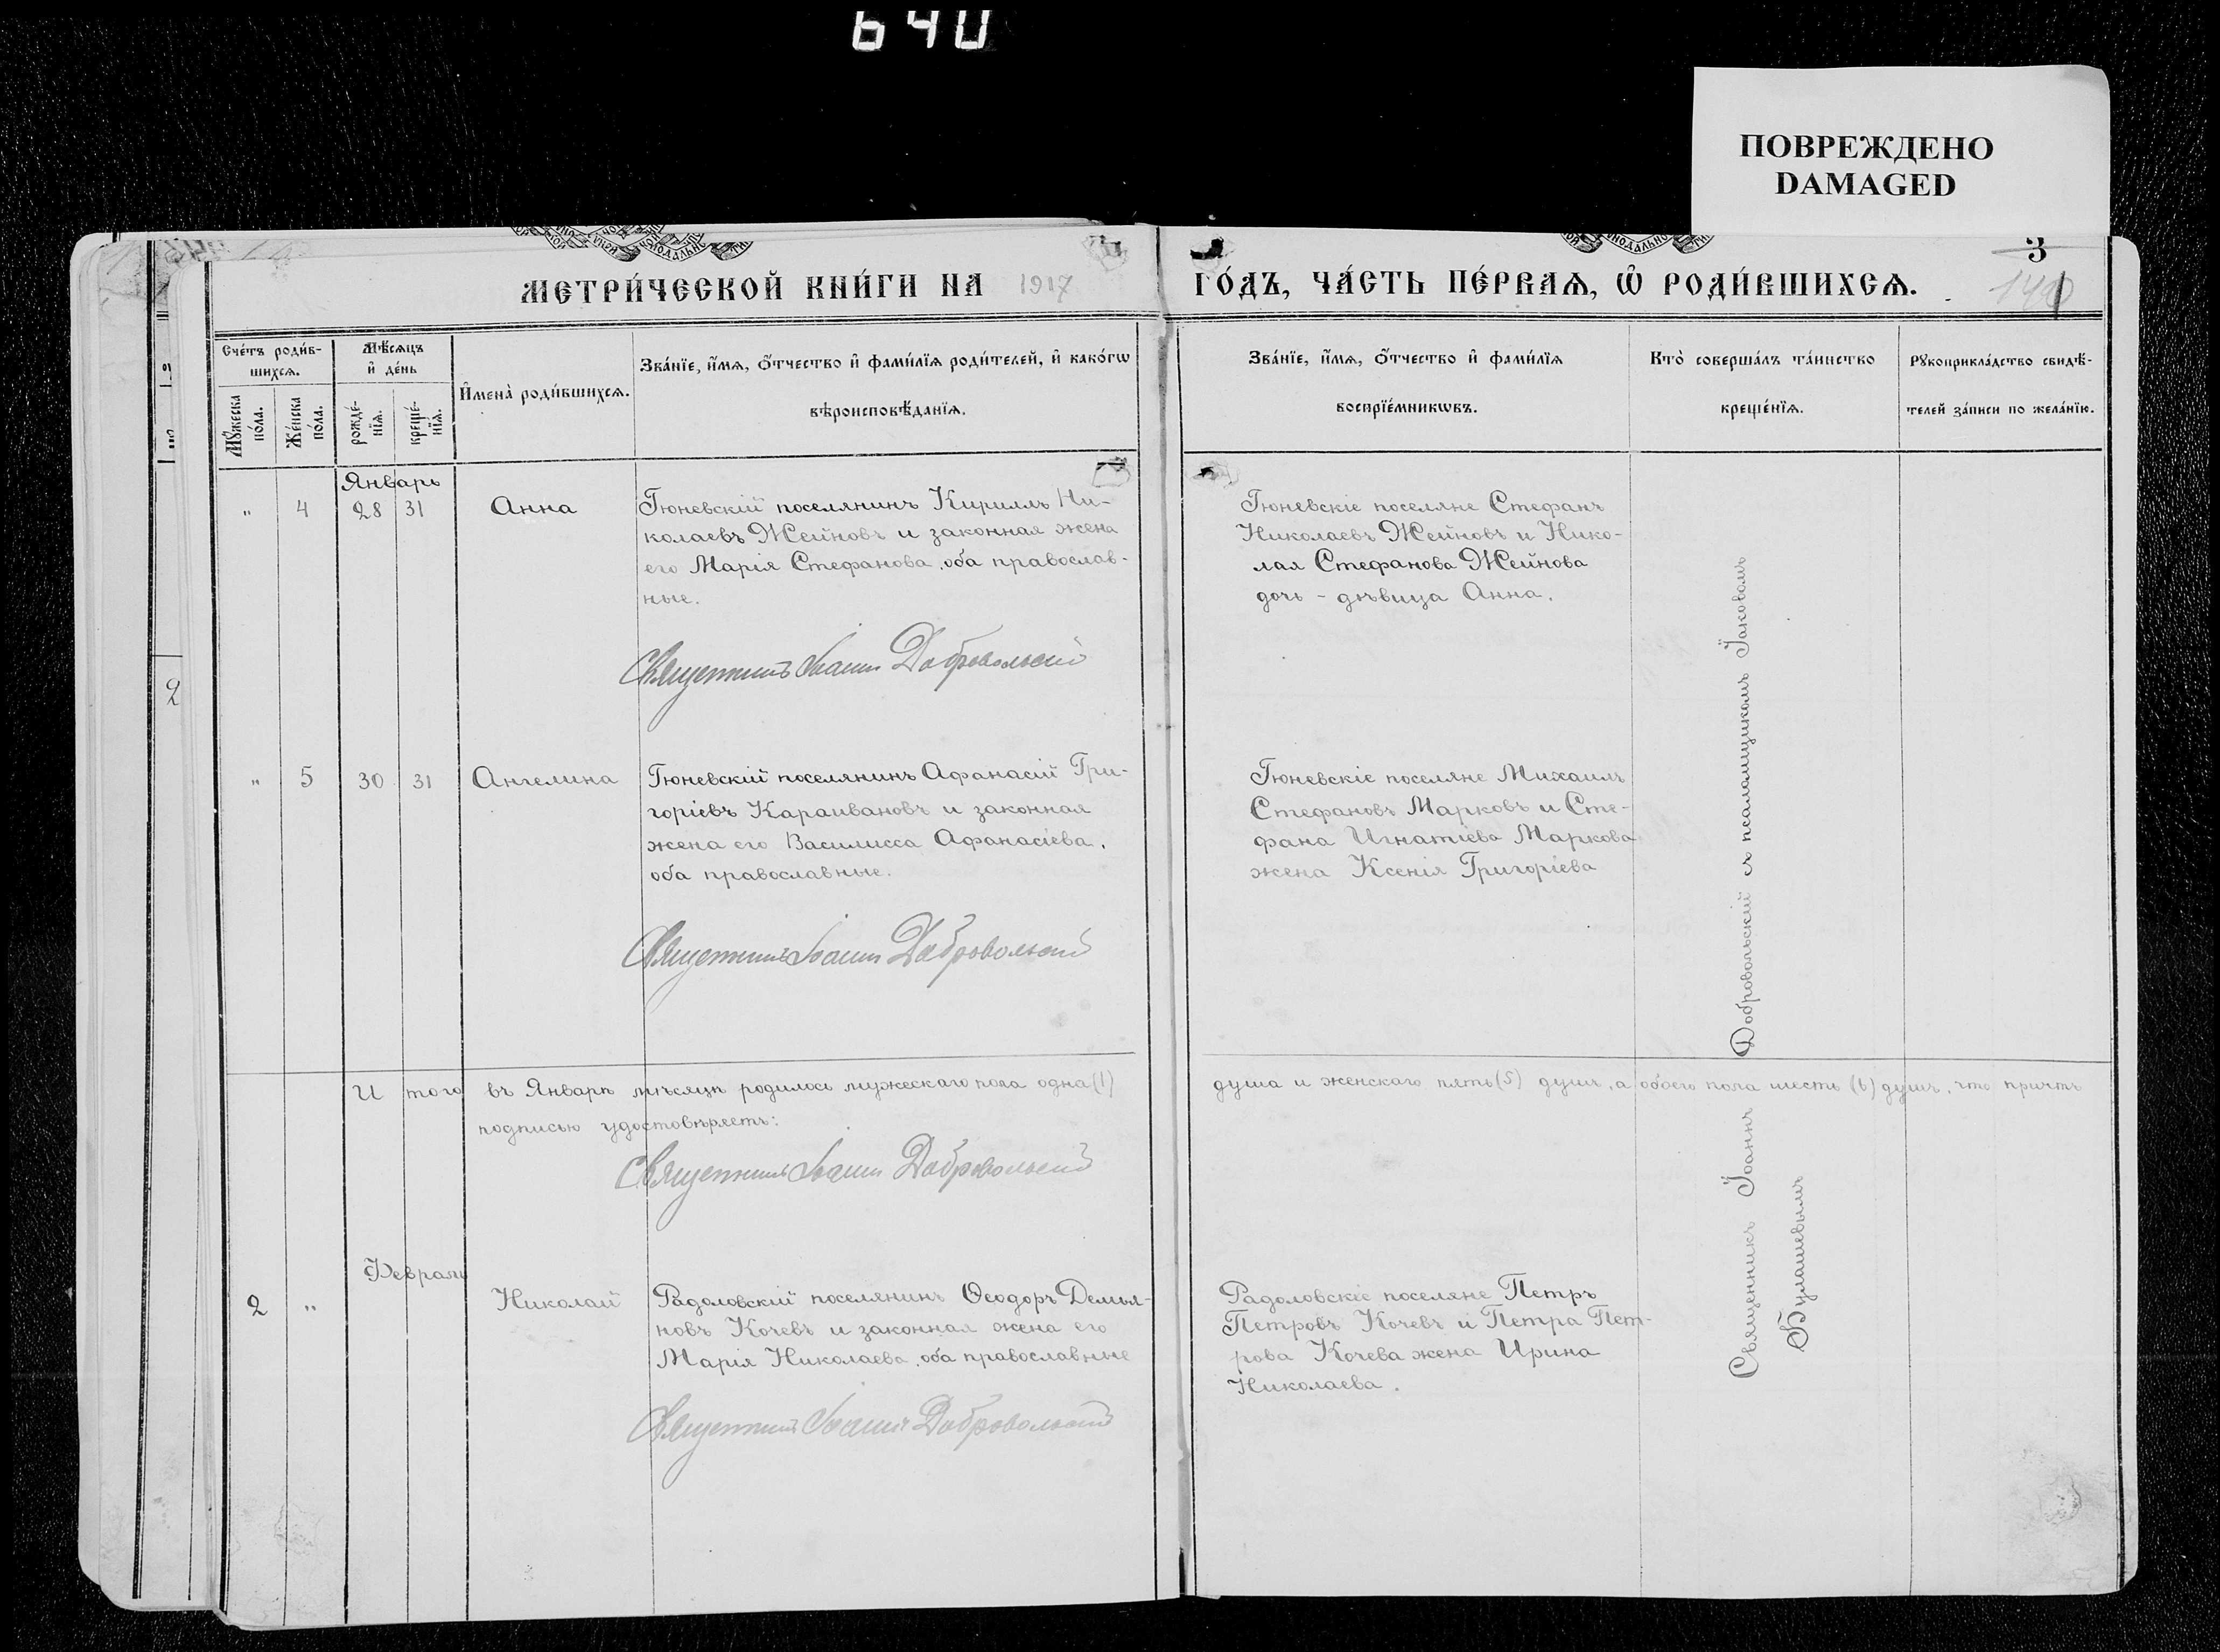 640
ПОВРЕЖДЕНО
DAMAGED
3
МЕТРИ́ЧЕСКОЙ КНИ́ГИ НА 1917
ГО́ДЪ, ЧА́СТЬ ПЕ́РВАѦ, Ѡ҆ РОДИ́ВШИХСѦ.
Сче́тъ роди́в-
шихсѧ.
Мѣ́сѧцъ
и҆ де́нь
Мꙋ́жеска
по́ла.
Же́нска
по́ла.
рожде́-
нїѧ.
креще́-
нїѧ.
И҆мена̀ роди́вшихсѧ.
Зва́нїе, и҆́мѧ, ѻ҆́тчество и҆ фами́лїѧ роди́телей, и҆ како́гѡ
вѣроисповѣ́данїѧ.
Зва́нїе, и҆́мѧ, ѻ҆́тчество и҆ фами́лїѧ
воспрїе́мникѡвъ.
Кто̀ соверша́лъ та́инство
креще́нїѧ.
Рꙋкоприкла́дство свидѣ́-
телей за́писи по жела́нїю.
Январь
" 4 28 31 Анна
Гюневскій поселянинъ Кириллъ Ни-
колаевъ Жейновъ и законная жена
его Марія Стефанова, оба православ-
ные.
Священникъ Іоаннъ Добровольскій
Гюневскіе поселяне Стефанъ
Николаевъ Жейновъ и Нико-
лая Стефанова Жейнова
дочь - дѣвица Анна.
" 5 30 31 Ангелина
Гюневскій поселянинъ Афанасій Гри-
горіевъ Караивановъ и законная
жена его Василисса Афанасіева,
оба православные.
Священникъ Іоаннъ Добровольскій
Гюневскіе поселяне Михаилъ
Стефановъ Марковъ и Сте-
фана Игнатіева Маркова
жена Ксенія Григоріева
И того въ Январѣ мѣсяцѣ родилось мужескаго пола одна (1) душа и женскаго пять (5) душъ, а обоего пола шесть (6) душъ, что причтъ
подписью удостовѣряетъ:
Священникъ Іоаннъ Добровольскій
Февраль
2 " Николай
Радоловскій поселянинъ Ѳеодоръ Демья-
новъ Кочевъ и законная жена его
Марія Николаева, оба православные
Священникъ Іоаннъ Добровольскій
Радоловскіе поселяне Петръ
Петровъ Кочевъ и Петра Пет-
рова Кочева жена Ирина
Николаева.
Священникъ Іоаннъ Добровольскій съ псаломщикомъ Іаковомъ
Булашевымъ
2